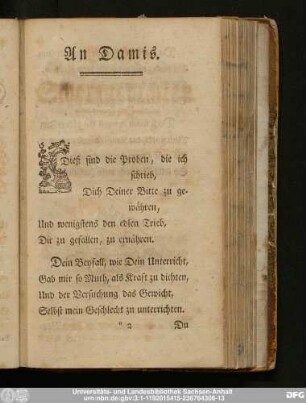 An Damis.
Dieß sind die Proben, die ich
schrieb,
Dich Deiner Bitte zu ge-
währen,
Und wenigstens den edlen Trieb,
Dir zu gefallen, zu ernähren.
Dein Beyfall, wie Dein Unterricht,
Gab mir so Muth, als Kraft zu dichten,
Und der Versuchung das Gewicht,
Selbst mein Geschlecht zu unterrichten.
" 2 Du
Universitäts- und Landesbibliothek Sachsen-Anhalt
urn:nbn:de:gbv:3:1-1192015415-236784306-13
DFG